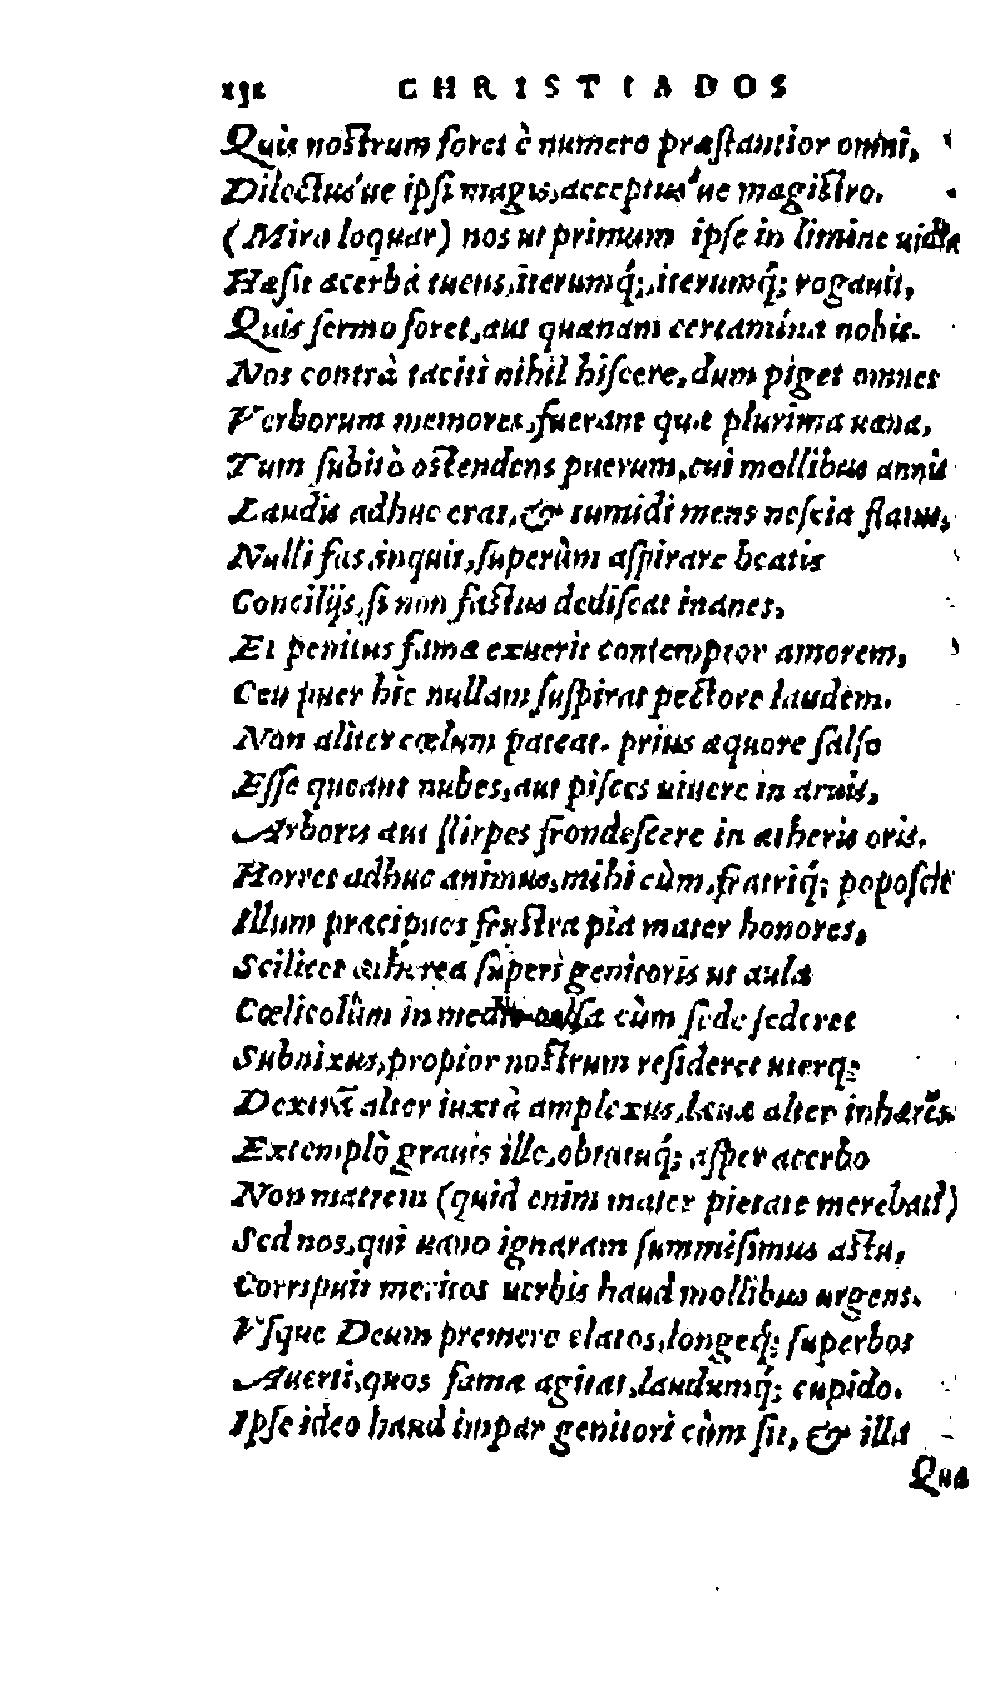 132 CHRISTIADOS
Quis nostrum foret è numero præstantior omni,
Dilectus'ue ipsi magis, acceptus'ue magistro.
(Mira loquar) nos ut primum ipse in limine uidit
Hæsit acerbà tuens, iterumq́;, iterumq́; rogauit,
Quis sermo foret, aut quænam certamina nobis.
Nos contrà taciti nihil hiscere, dum piget omnes
Verborum memores, fuerant quæ plurima uana,
Tum subitò ostendens puerum, cui mollibus annis
Laudis adhuc erat, & tumidi mens nescia flatus,
Nulli fas, inquit, superûm aspirare beatis
Concilijs, si non fastus dediscat inanes,
Et penitus famæ exuerit contemptor amorem,
Ceu puer hic nullam suspirat pectore laudem.
Non aliter cœlum pateat. prius æquore salso
Esse queant nubes, aut pisces uiuere in aruis,
Arboris aut stirpes frondescere in ætheris oris.
Horret adhuc animus, mihi cùm, fratriq́; poposcit
Illum præcipuos frustra pia mater honores,
Scilicet ætherea superi genitoris ut aula
Cœlicolûm in medio celsa cùm sede sederet
Subnixus, propior nostrum resideret uterq;
Dextrã alter iuxtà amplexus, læuæ alter inhærẽs.
Extemplò grauis ille, obtutuq́; asper acerbo
Non matrem (quid enim mater pietate merebat?)
Sed nos, qui uano ignaram summisimus astu,
Corripuit meritos uerbis haud mollibus urgens.
Vsque Deum premere elatos, longeq́; superbos
Auerti, quos famæ agitat, laudumq́; cupido.
Ipse ideo haud impar genitori cùm sit, & illa
Qua